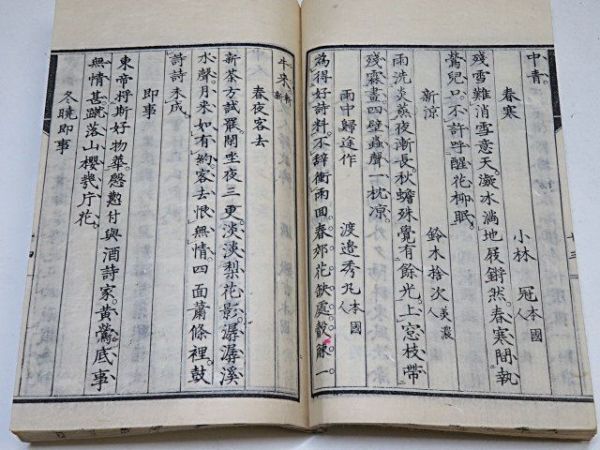 中青。
春寒　小林　冠　本國人
殘雪難消雪意天。凝氷滿地屐鏘然。春寒閒執
鶯兒口。不許呼醒花柳眠。
新涼　鈴木捨次　美濃人
雨洗炎蒸夜漸長。秋蟾殊覺有餘光。上窓枝帶
殘霖畫。四壁蟲聲一枕涼。
雨中歸途作　渡邉秀　本國人
為得好詩料。不辭衝雨回。春郊花缺處。數一
牛來。
春夜客去
新茶方試罷。閒坐夜三更。淡淡梨花影。潺潺溪
水聲。月來如有約。客去恨無情。四面蕭條裡。
詩詩未成。
即事
東帝將斯好物華。慇懃付與酒詩家。黃鶯底事
無情甚。蹴落山櫻幾片花。
冬曉即事